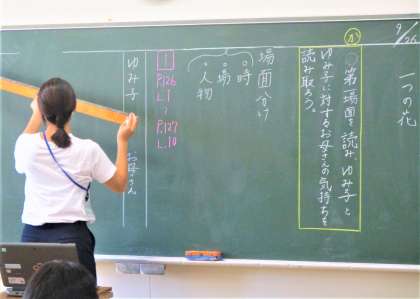 9/26
一つの花
か
第一場面を読み、ゆみ子と
ゆみ子に対するお母さんの気持ちを
読み取ろう。
場面分け
・時
・場
・人物
1
P.126
L.1
〜
P.127
L.10
ゆみ子
お母さん